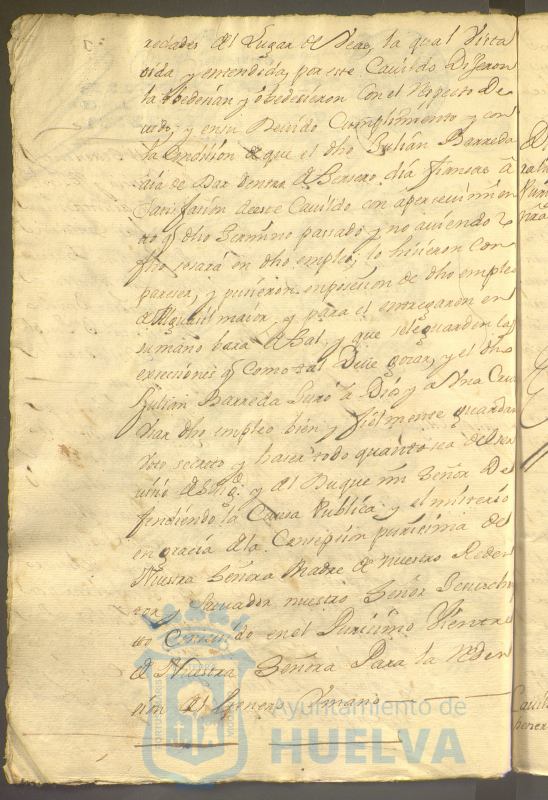 redades del Lugar de Veas, la qual Vista
oida y entendida, por este Cavildo Dijeron
la obedesian y obedesieron Con el Respecto De
vido; y en su Devido Cumplimiento y con
la Condision de que el dho Julián Barreda
aia de Dar dentro de Tersero dia fiansas à
Satisfasion deeste Cavildo con apersevimien
tto q dho Termino passado y no aviendo
fho sesará en dho empleo; lo hisieron Con
pareser, y pusieron en posesion de dho empleo
de Alguasil maior, y para el entregaron en
su mano bara Alta, y que sele guarden las
execsiones q Como tal Deve gosar, y el dho
Julian Barreda Juró à Dios y a Una Cruz
Usar dho empleo bien y fielmente guardar
todo secreto y haser todo quanto sea del ser
visio de y del Duque mi Señor De
fendiendo la Causa Publica y el misterio
en grasia de la Consepsion purissima de
Nuestra Señora Madre de nuestro Reden
tor y Salvador nuestro Señor Jesuchri
tto Consevido en el Purissimo Vientre
de Nuestra Señora Para la Reden
sion del Genero Umano
Ayuntamiento de
HUELVA